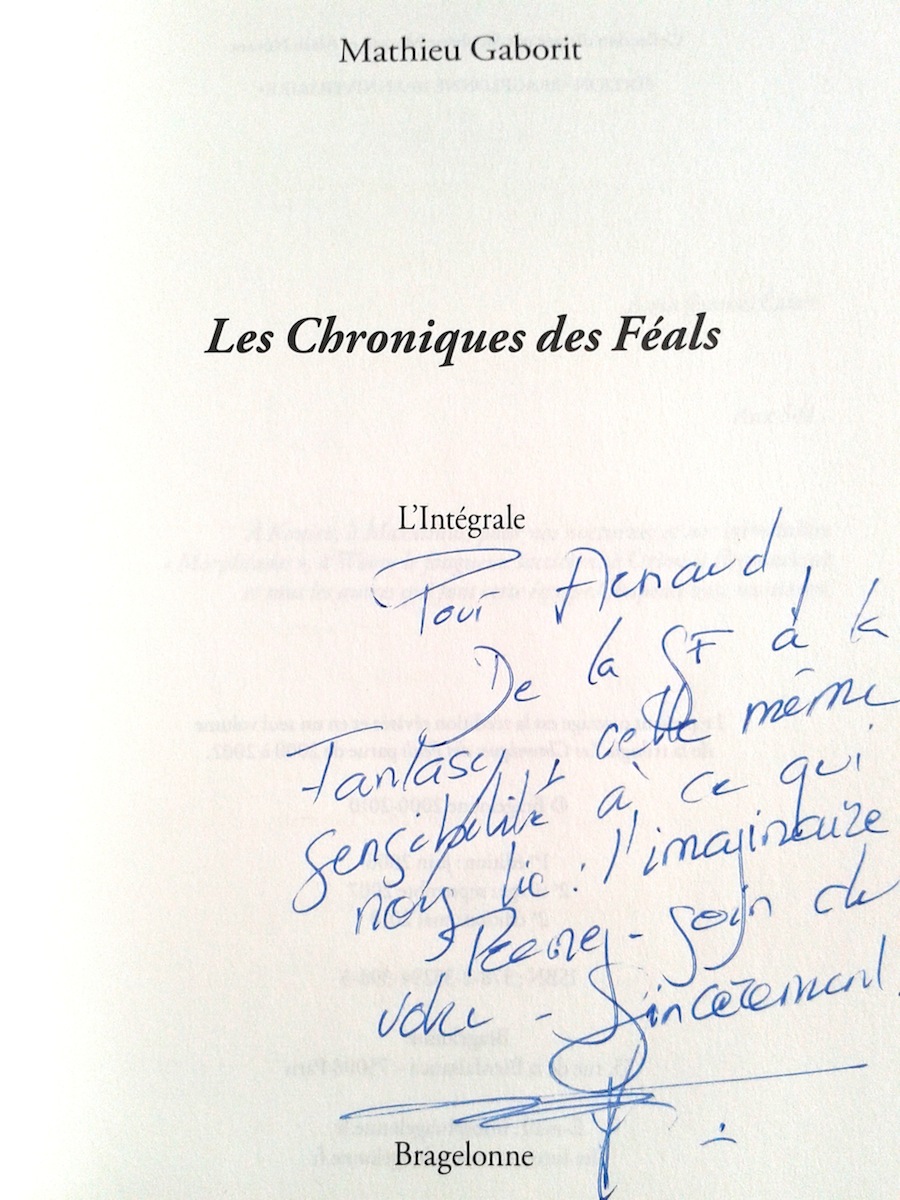 Mathieu Gaborit
Les Chroniques des Féals
L'Intégrale
Pour Arnaud,
De la SF à la
Fantasy, cette même
sensibilité à ce qui
nous lie : l'imaginaire
Prenez-soin du
vôtre - Sincèrement.
Bragelonne